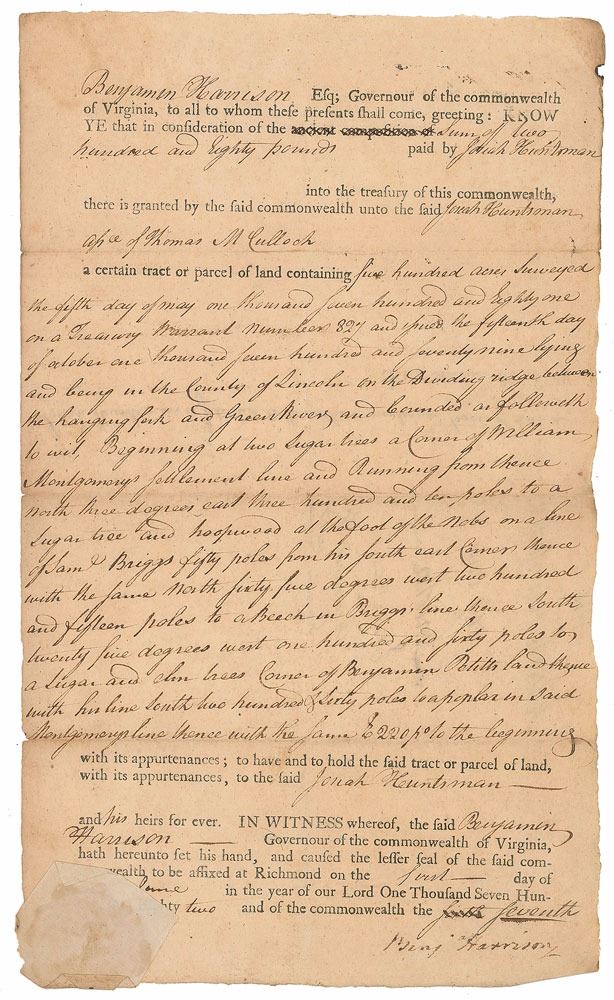 Benjamin Harrison Esq; Governour of the commonwealth
of Virginia, to all to whom these presents shall come, greeting: KNOW
YE that in consideration of the ancient composition of sum of two
hundred and Eighty pounds paid by Josiah Huntsman
into the treasury of this commonwealth,
there is granted by the said commonwealth unto the said Josiah Huntsman
of Thomas McCulloch
a certain tract or parcel of land containing five hundred acres Surveyed
the fifth day of may one thousand seven hundred and Eighty one
on a Treasury Warrant number 827 and issued the fifteenth day
of october one thousand seven hundred and seventy nine lying
and being in the County of Lincoln on the Dividing ridge between
the hanging fork and Green River and bounded as followeth
to wit, Beginning at two Sugar trees a Corner of William
Montgomerys Settlement line and Running from thence
north three degrees east three hundred and ten poles to a
Sugar tree and hoopwood at the foot of the Nobs on a line
of Saml Briggs fifty poles from his south east Corner thence
with the same North sixty five degrees west two hundred
and fifteen poles to a Beech in Briggs line thence South
twenty five degrees west one hundred and sixty poles to
a Sugar and elm trees Corner of Benjamin land thence
with his line South two hundred & Sixty poles to a poplar in said
Montgomerys line thence with the same E 220 po to the beginning
with its appurtenances; to have and to hold the said tract or parcel of land,
with its appurtenances, to the said Josiah Huntsman
and his heirs for ever. IN WITNESS whereof, the said Benjamin
Harrison Governour of the commonwealth of Virginia,
hath hereunto set his hand, and caused the lesser seal of the said com-
wealth to be affixed at Richmond on the first day of
June in the year of our Lord One Thousand Seven Hun-
hty two and of the commonwealth the seventh
Benj Harrison